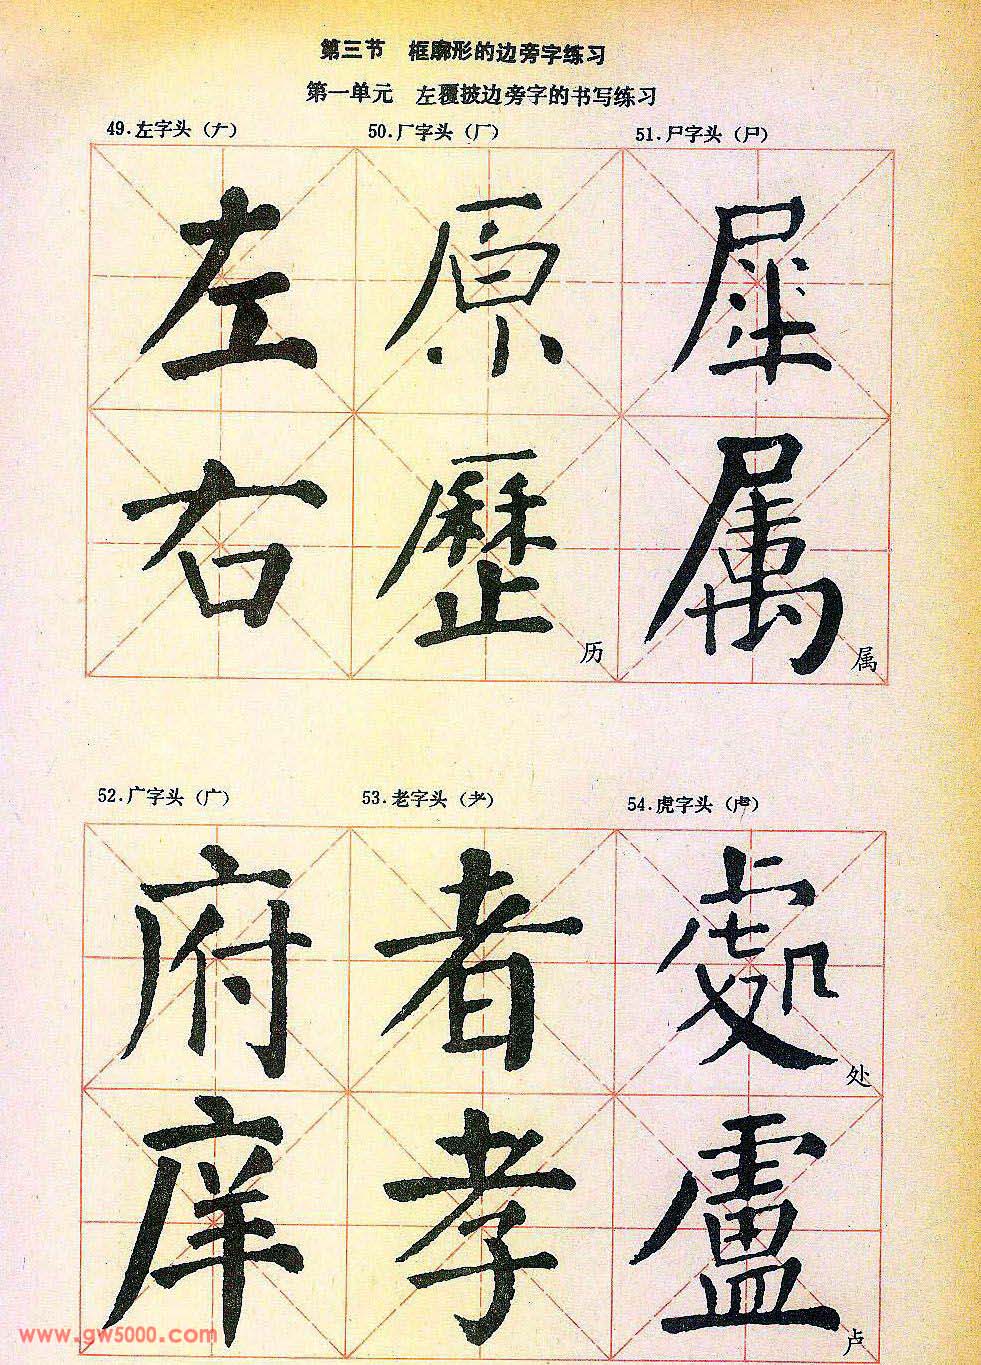 第三节 框廓形的边旁字练习
第一单元 左覆披边旁字的书写练习
49.左字头（𠂇） 50.厂字头（厂） 51.尸字头（尸）
左 原 犀
右 歷 属
历 属
52.广字头（广） 53.老字头（耂） 54.虎字头（虍）
府 者 處
处
庠 孝 盧
卢
www.gw5000.com